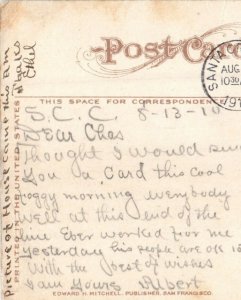 Post Car
SANTA
AUG
10 30
191
THIS SPACE FOR CORRESPONDENCE
S.C.C. 8-13-10
Dear Chas
Thought I would send
You a Card this cool
foggy morning everybody
well at this end of the
line Ever worked for me
Yesterday his people are off
With the best of wishes
I am Yours Albert
EDWARD H. MITCHELL, PUBLISHER, SAN FRANCISCO.
PRINTED IN THE UNITED STATES
Picture of House Camp this am
Ethel